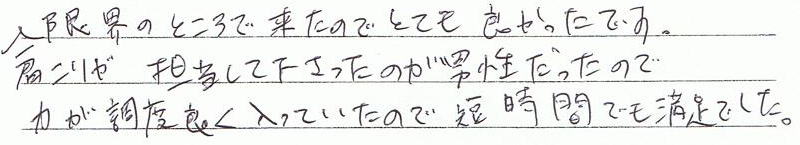 限界のところで来たのでとても良かったです。
肩こりが 担当して下さったのが男性だったので
力が調度良く入っていたので短時間でも満足でした。